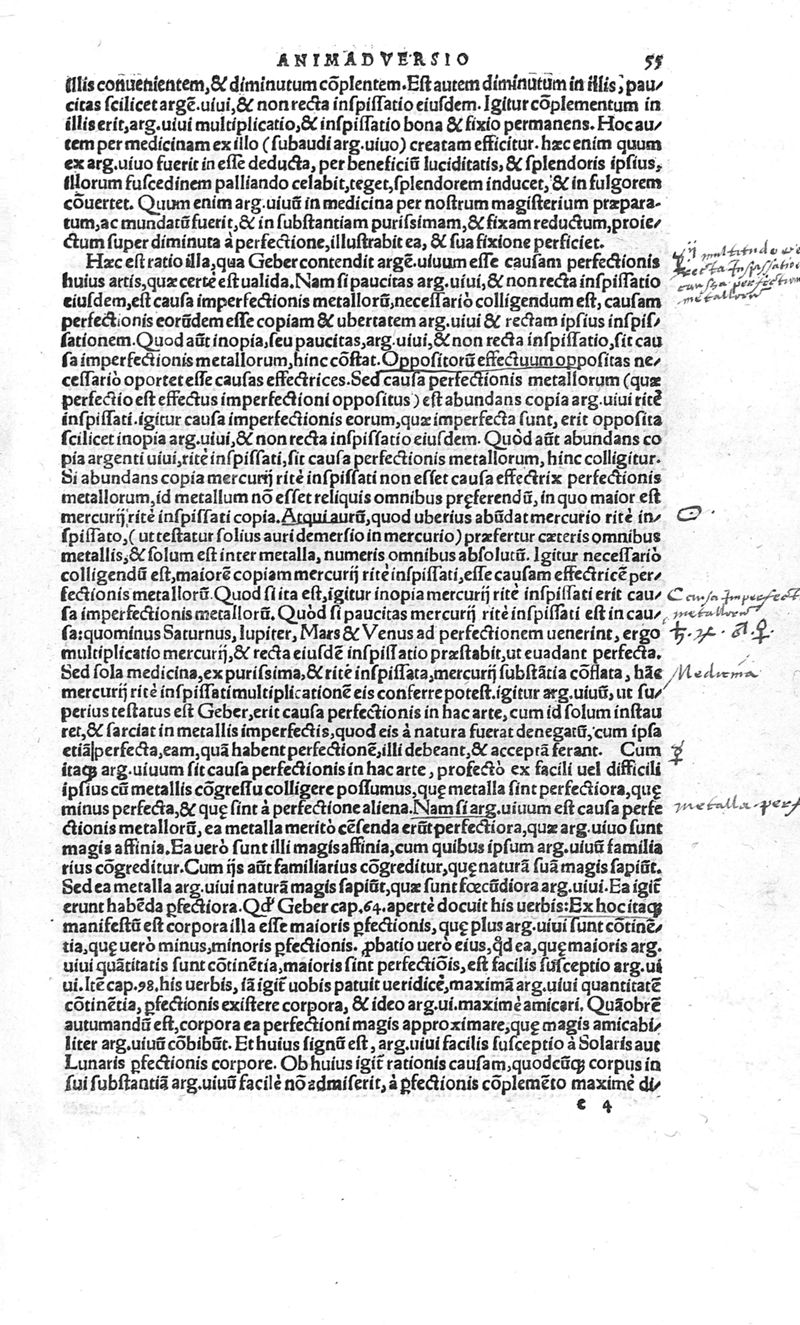 ANIMADVERSIO 55
illis conuenientem,& diminutum cõplentem.Est autem diminutum in illis, pau/
citas scilicet argẽ.uiui,& non recta inspissatio eiusdem. Igitur cõplementum in
illis erit,arg.uiui multiplicatio,& inspissatio bona & fixio permanens. Hoc au/
tem per medicinam ex illo (subaudi arg.uiuo) creatam efficitur. hæc enim quum
ex arg.uiuo fuerit in esse deducta, per beneficiũ luciditatis,& splendoris ipsius,
illorum fuscedinem palliando celabit,teget,splendorem inducet, & in fulgorem
cõuertet. Quum enim arg.uiuũ in medicina per nostrum magisterium præpara-
tum,ac mundatũ fuerit,& in substantiam purissimam,& fixam reductum,proie/
ctum super diminuta à perfectione,illustrabit ea, & sua fixione perficiet.
Hæc est ratio illa,qua Geber contendit argẽ.uiuum esse causam perfectionis
huius artis,quæ certè est ualida. Nam si paucitas arg.uiui,& non recta inspissatio
eiusdem,est causa imperfectionis metallorũ,necessariò colligendum est, causam
perfectionis eorũdem esse copiam & ubertatem arg.uiui & rectam ipsius inspis/
sationem. Quod aũt inopia,seu paucitas,arg.uiui,& non recta inspissatio,sit cau
sa imperfectionis metallorum,hinc cõstat.Oppositorũ effectuum oppositas ne/
cessariò oportet esse causas effectrices.Sed causa perfectionis metallorum (quæ
perfectio est effectus imperfectioni oppositus) est abundans copia arg.uiui ritè
inspissati.igitur causa imperfectionis eorum,quæ imperfecta sunt, erit opposita
scilicet inopia arg.uiui,& non recta inspissatio eiusdem. Quòd aũt abundans co
pia argenti uiui,ritè inspissati,sit causa perfectionis metallorum, hinc colligitur.
Si abundans copia mercurij ritè inspissati non esset causa effectrix perfectionis
metallorum,id metallum nõ esset reliquis omnibus pręferendũ, in quo maior est
mercurij ritè inspissati copia.Atqui aurũ,quod uberius abũdat mercurio ritè in/
spissato,( ut testatur solius auri demersio in mercurio) præfertur cæteris omnibus
metallis,& solum est inter metalla, numeris omnibus absolutũ. Igitur necessariò
colligendũ est,maiorẽ copiam mercurij ritè inspissati,esse causam effectricẽ per/
fectionis metallorũ. Quod si ita est,igitur inopia mercurij ritè inspissati erit cau/
sa imperfectionis metallorũ. Quòd si paucitas mercurij ritè inspissati est in cau/
sa:quominus Saturnus, Iupiter, Mars & Venus ad perfectionem uenerint, ergo
multiplicatio mercurij,& recta eiusdẽ inspissatio præstabit,ut euadant perfecta.
Sed sola medicina,ex purissima,& ritè inspissata,mercurij substãtia cõflata , hãc
mercurij ritè inspissati multiplicationẽ eis conferre potest.igitur arg.uiuũ, ut su/
perius testatus est Geber,erit causa perfectionis in hac arte, cum id solum instau
ret,& sarciat in metallis imperfectis,quod eis à natura fuerat denegatũ, cum ipsa
etiã perfecta,eam,quã habent perfectionẽ,illi debeant,& acceptã ferant. Cum
itaq; arg.uiuum sit causa perfectionis in hac arte , profectò ex facili uel difficili
ipsius cũ metallis cõgressu colligere possumus,quę metalla sint perfectiora,quę
minus perfecta,& quę sint à perfectione aliena.Nam si arg.uiuum est causa perfe
ctionis metallorũ, ea metalla meritò cẽsenda erũt perfectiora,quæ arg.uiuo sunt
magis affinia. Ea uerò sunt illi magis affinia,cum quibus ipsum arg.uiuũ familia
rius cõgreditur.Cum ijs aũt familiarius cõgreditur,quę naturã suã magis sapiũt.
Sed ea metalla arg.uiui naturã magis sapiũt,quæ sunt fœcũdiora arg.uiui.Ea igit̃
erunt habẽda ꝑfectiora.Qd̃ Geber cap.64.apertè docuit his uerbis:Ex hoc itaq;
manifestũ est corpora illa esse maioris ꝑfectionis, quę plus arg.uiui sunt cõtinẽ/
tia,quę uerò minus,minoris ꝑfectionis. ꝓbatio uero eius,q̃d ea,quę maioris arg.
uiui quãtitatis sunt cõtinẽtia,maioris sint perfectiõis, est facilis susceptio arg.ui
ui. Itẽ cap.98.his uerbis, sã igit̃ uobis patuit ueridicè,maximã arg.uiui quantitatẽ
cõtinẽtia, ꝑfectionis existere corpora, & ideo arg.ui.maximè amicari. Quãobrẽ
autumandũ est,corpora ea perfectioni magis approximare,quę magis amicabi/
liter arg.uiuũ cõbibũt. Et huius signũ est , arg.uiui facilis susceptio à Solaris aut
Lunaris ꝑfectionis corpore. Ob huius igit̃ rationis causam,quodcũq; corpus in
sui substantiã arg.uiuũ facilè nõ admiserit, à ꝑfectionis cõplemẽto maximè di/
e 4
☿ij multitudo et
recta Inspissatio
causa perfection
metallorum
Causa Imperfect
metallorum
♄. ♃. ♂. ♀.
Medicina
☿
metalla perf